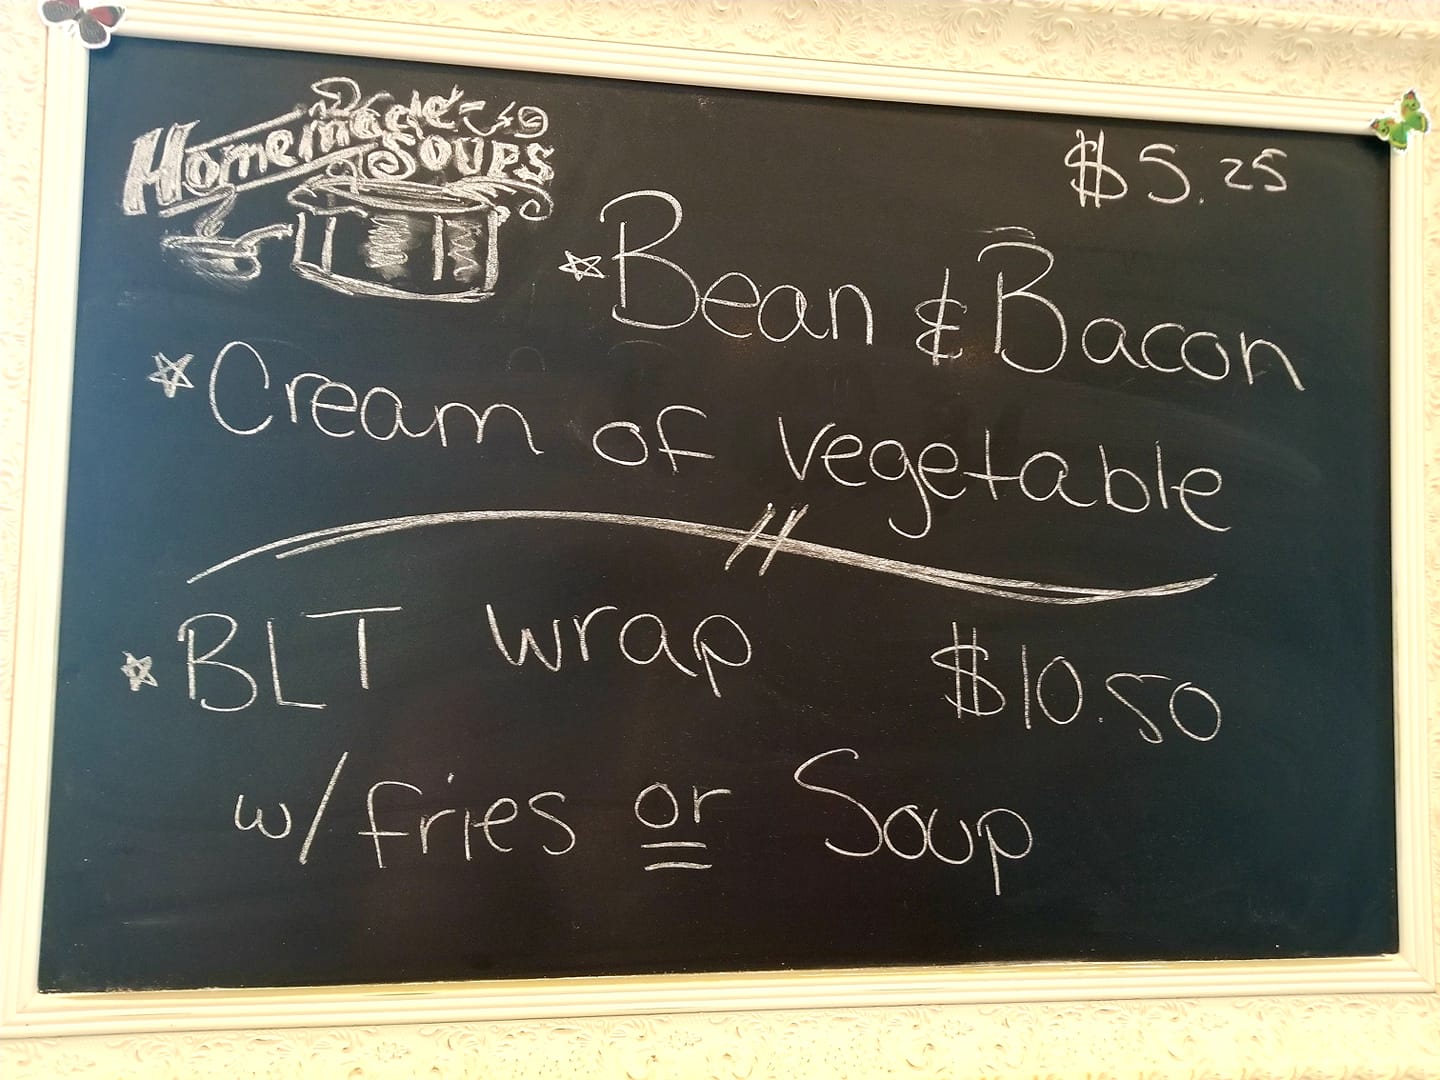 Homemade
Soups
$5.25
*Bean & Bacon
*Cream of vegetable
*BLT wrap $10.50
w/fries or Soup